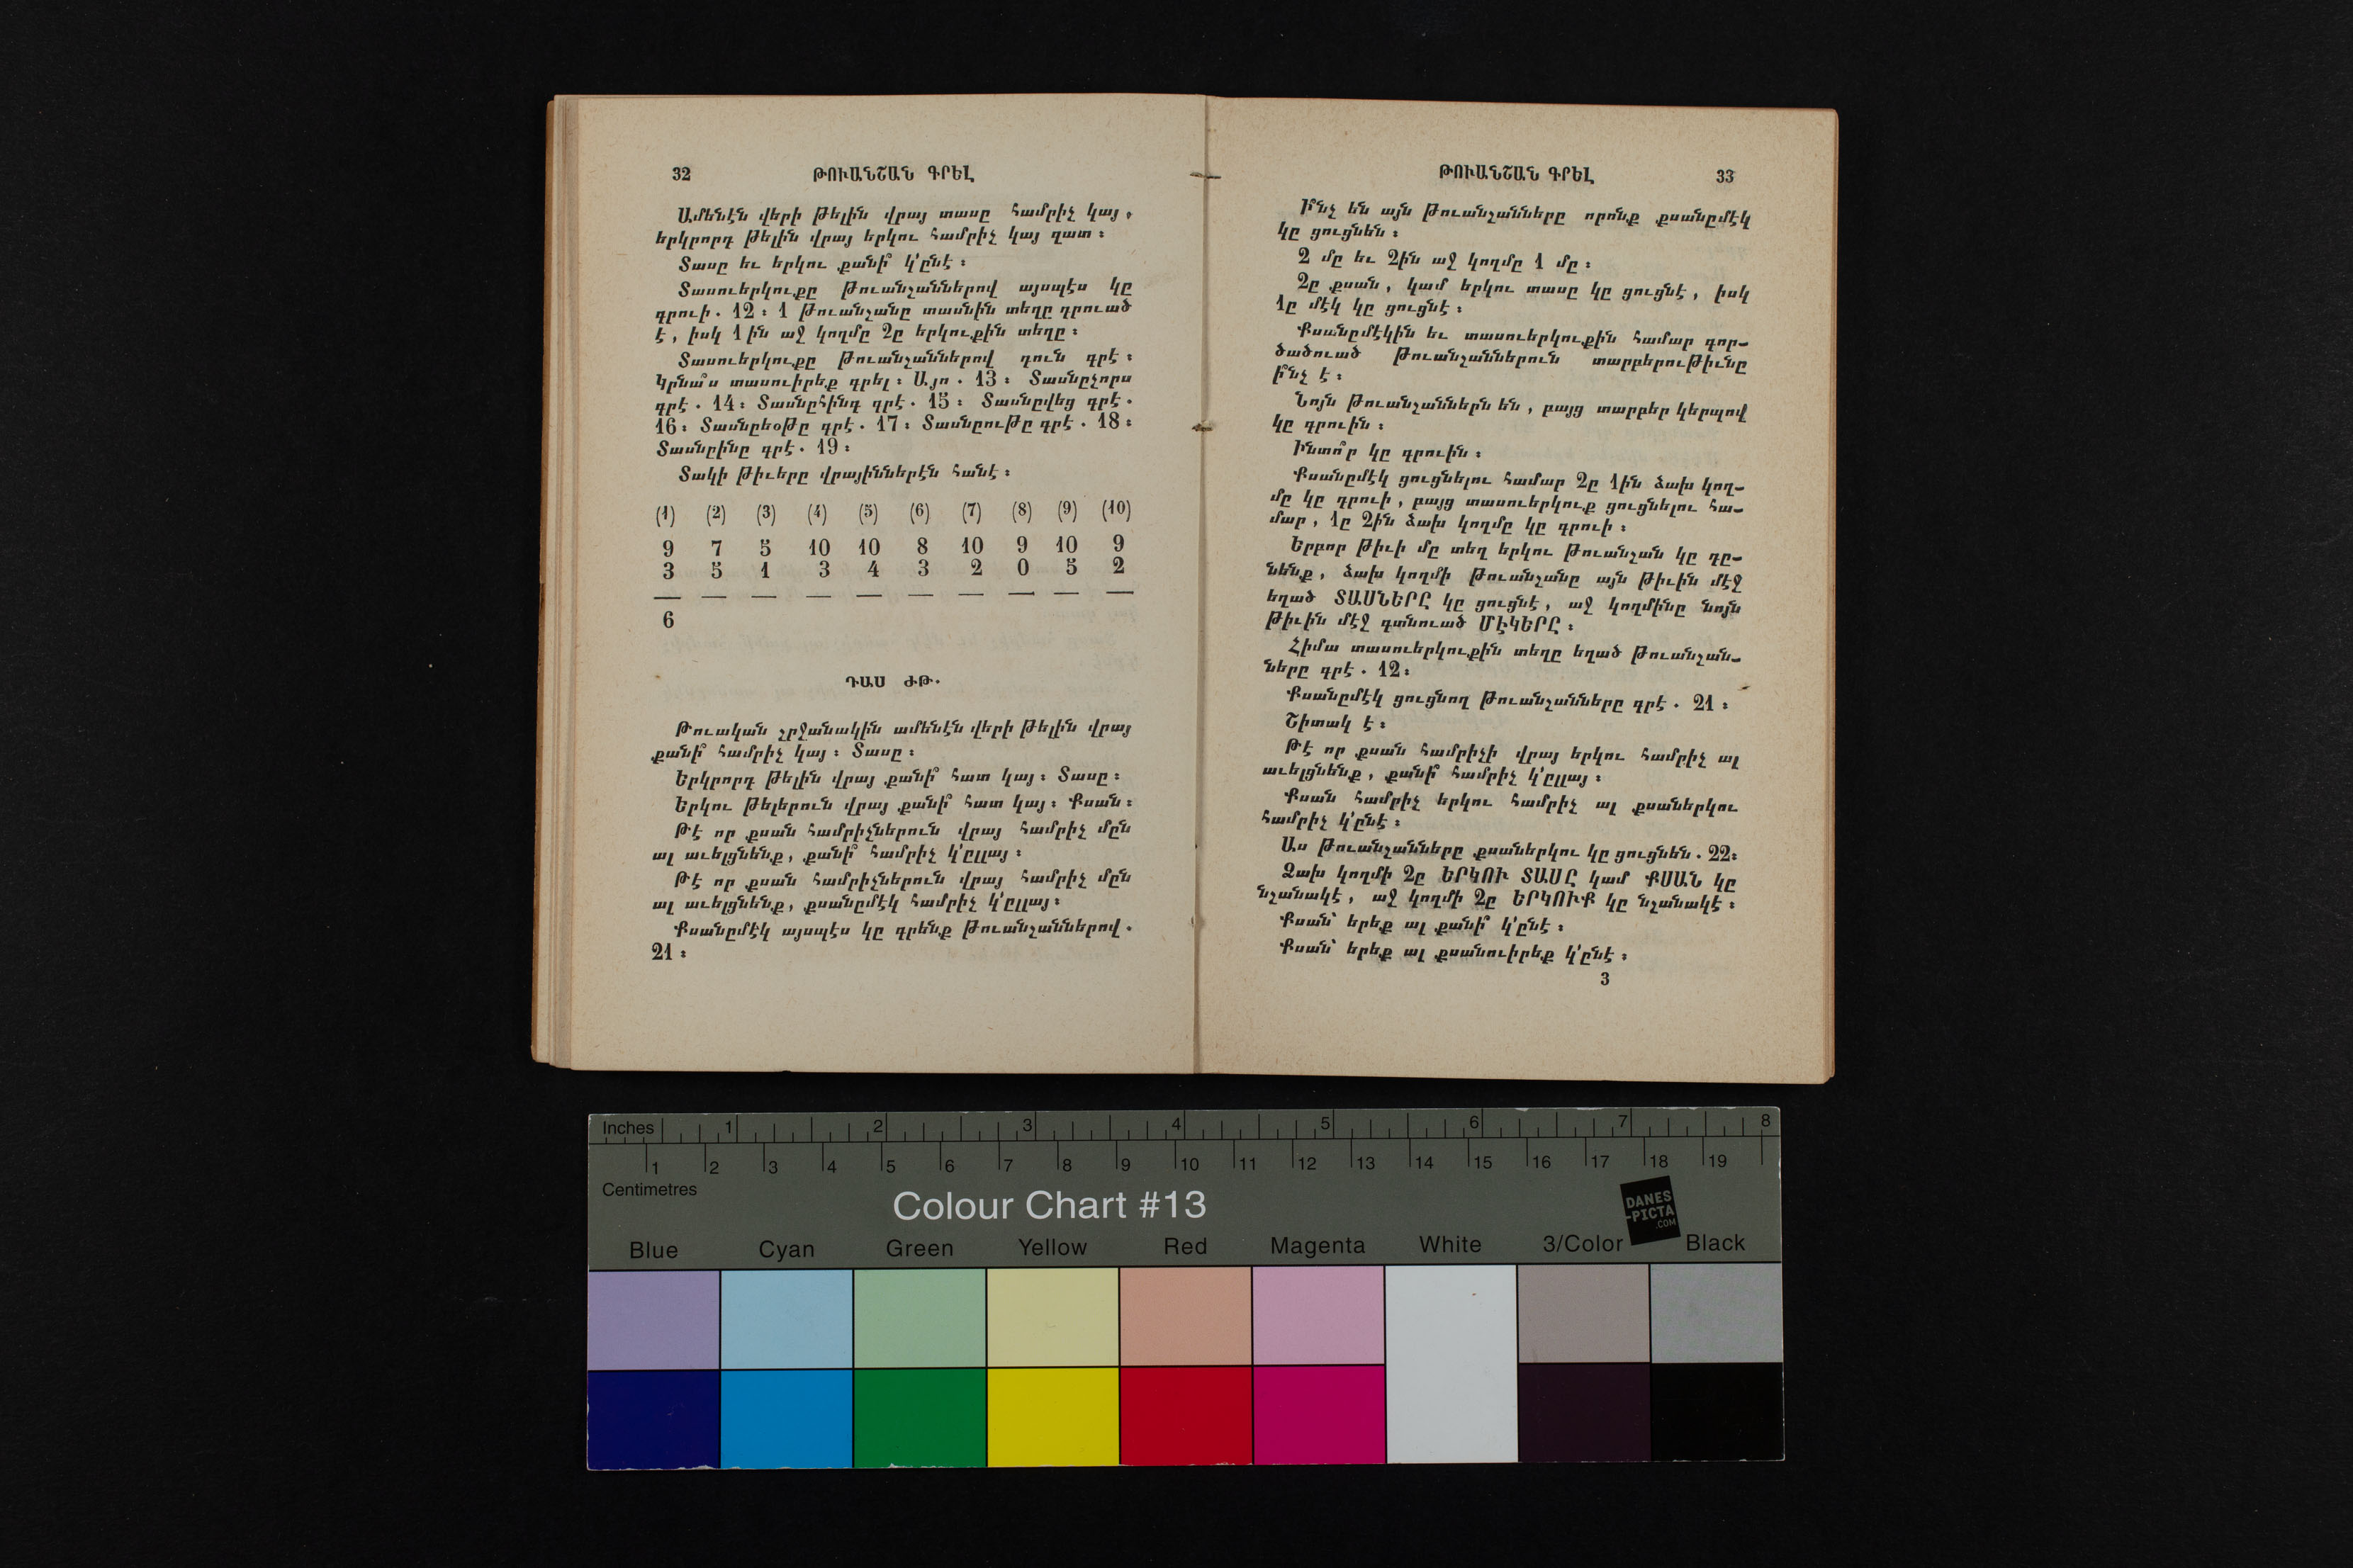 32 ԹՈՒԱՆՇԱՆ ԳՐԵԼ
Ամենէն վերի թելին վրայ տասը համրիչ կայ,
երկրորդ թելին վրայ երկու համրիչ կայ զատ։
Տասը եւ երկու քանի՞ կ՚ընէ։
Տասուերկուքը թուանշաններով այսպէս կը
գրուի. 12։ 1 թուանշանը տասնին տեղը դրուած
է, իսկ 1 ին աջ կողմը 2ը երկուքին տեղը։
Տասուերկուքը թուանշաններով դուն գրէ։
Կրնա՞ս տասուիրեք գրել։ Այո. 13։ Տասնըչորս
գրէ. 14։ Տասնըհինգ գրէ. 15։ Տասնըվեց գրէ.
16։ Տասնըեօթը գրէ. 17։ Տասնըութը գրէ. 18։
Տասնըինը գրէ. 19։
Տակի թիւերը վրայիններէն հանէ։
(1) (2) (3) (4) (5) (6) (7) (8) (9) (10)
9 7 5 10 10 8 10 9 10 9
3 5 1 3 4 3 2 0 5 2
— — — — — — — — — —
6
ԴԱՍ ԺԹ.
Թուական շրջանակին ամենէն վերի թելին վրայ
քանի՞ համրիչ կայ։ Տասը։
Երկրորդ թելին վրայ քանի՞ հատ կայ։ Տասը։
Երկու թելերուն վրայ քանի՞ հատ կայ։ Քսան։
Թէ որ քսան համրիչներուն վրայ համրիչ մըն
ալ աւելցնենք, քանի՞ համրիչ կ՚ըլլայ։
Թէ որ քսան համրիչներուն վրայ համրիչ մըն
ալ աւելցնենք, քսանըմէկ համրիչ կ՚ըլլայ։
Քսանըմէկ այսպէս կը գրենք թուանշաններով.
21։
ԹՈՒԱՆՇԱՆ ԳՐԵԼ 33
Ի՞նչ են այն թուանշանները որոնք քսանըմէկ
կը ցուցնեն։
2 մը եւ 2ին աջ կողմը 1 մը։
2ը քսան, կամ երկու տասը կը ցուցնէ, իսկ
1ը մէկ կը ցուցնէ։
Քսանըմէկին եւ տասուերկուքին համար գոր-
ծածուած թուանշաններուն տարբերութիւնը
ի՞նչ է։
Նոյն թուանշաններն են, բայց տարբեր կերպով
կը գրուին։
Ինտո՞ր կը գրուին։
Քսանըմէկ ցուցնելու համար 2ը 1ին ձախ կող-
մը կը դրուի, բայց տասուերկուք ցուցնելու հա-
մար, 1ը 2ին ձախ կողմը կը դրուի։
Երբոր թիւի մը տեղ երկու թուանշան կը դը-
նենք, ձախ կողմի թուանշանը այն թիւին մէջ
եղած ՏԱՍՆԵՐԸ կը ցուցնէ, աջ կողմինը նոյն
թիւին մէջ գտնուած ՄԷԿԵՐԸ։
Հիմա տասուերկուքին տեղը եղած թուանշան-
ները գրէ. 12։
Քսանըմէկ ցուցնող թուանշանները գրէ. 21։
Շիտակ է։
Թէ որ քսան համրիչի վրայ երկու համրիչ ալ
աւելցնենք, քանի՞ համրիչ կ՚ըլլայ։
Քսան համրիչ երկու համրիչ ալ քսաներկու
համրիչ կ՚ընէ։
Աս թուանշանները քսաներկու կը ցուցնեն. 22։
Ձախ կողմի 2ը ԵՐԿՈՒ ՏԱՍԸ կամ ՔՍԱՆ կը
նշանակէ, աջ կողմի 2ը ԵՐԿՈՒՔ կը նշանակէ։
Քսան՝ երեք ալ քանի՞ կ՚ընէ։
Քսան՝ երեք ալ քսանուիրեք կ՚ընէ։
3
Inches 1 2 3 4 5 6 7 8
1 2 3 4 5 6 7 8 9 10 11 12 13 14 15 16 17 18 19
Centimetres
Colour Chart #13
DANES
-PICTA
.COM
Blue Cyan Green Yellow Red Magenta White 3/Color Black